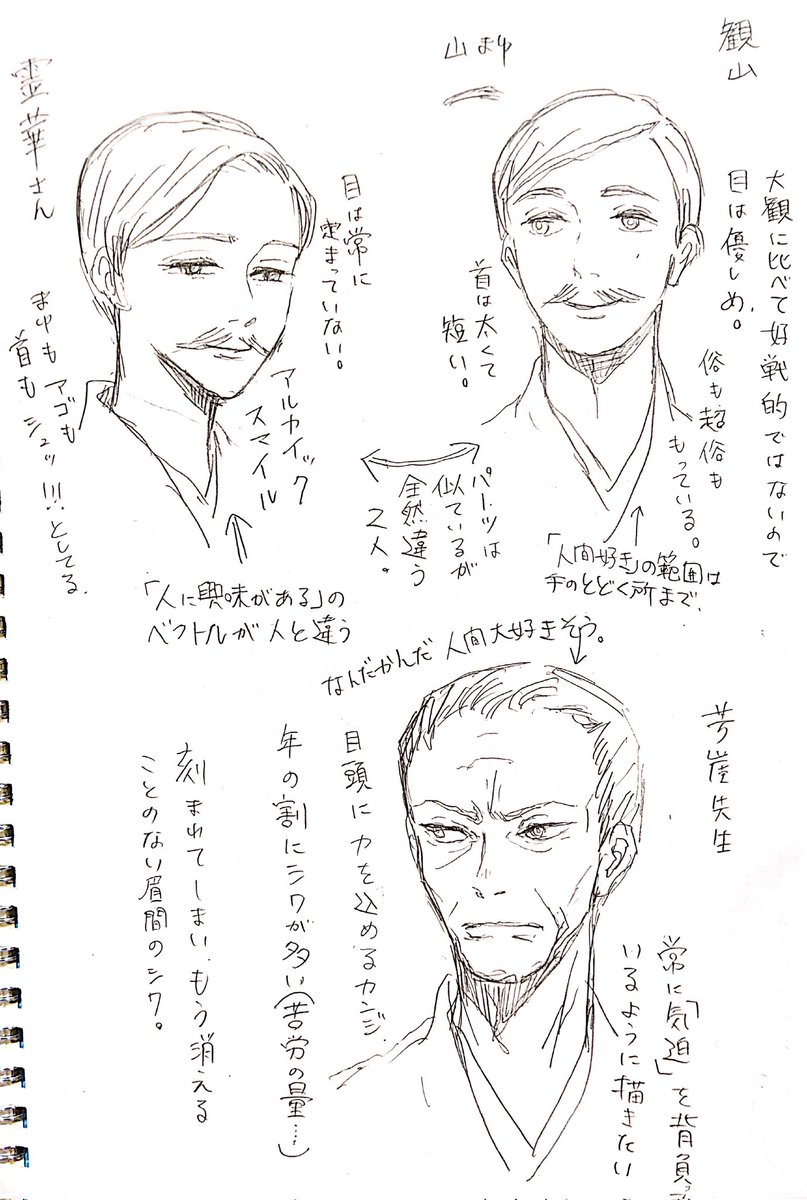 観山
山まゆ
大観に比べて好戦的ではないので
目は優しめ。
俗も超俗も
もっている。
首は太くて
短い。
「人間好き」の範囲は
手のとどく所まで、
パーツは
似ているが
全然違う
2人。
霊華さん
目は常に
定まっていない。
アルカイック
スマイル
まゆもアゴも
首もシュッ!!!としてる。
「人に興味がある」の
ベクトルが人と違う
なんだかんだ人間大好きそう。
芳崖先生
常に「気迫」を背負っ
いるように描きたい
目頭に力を込めるカンジ
年の割にシワが多い(苦労の量…)
刻まれてしまい、もう消える
ことのない眉間のシワ。